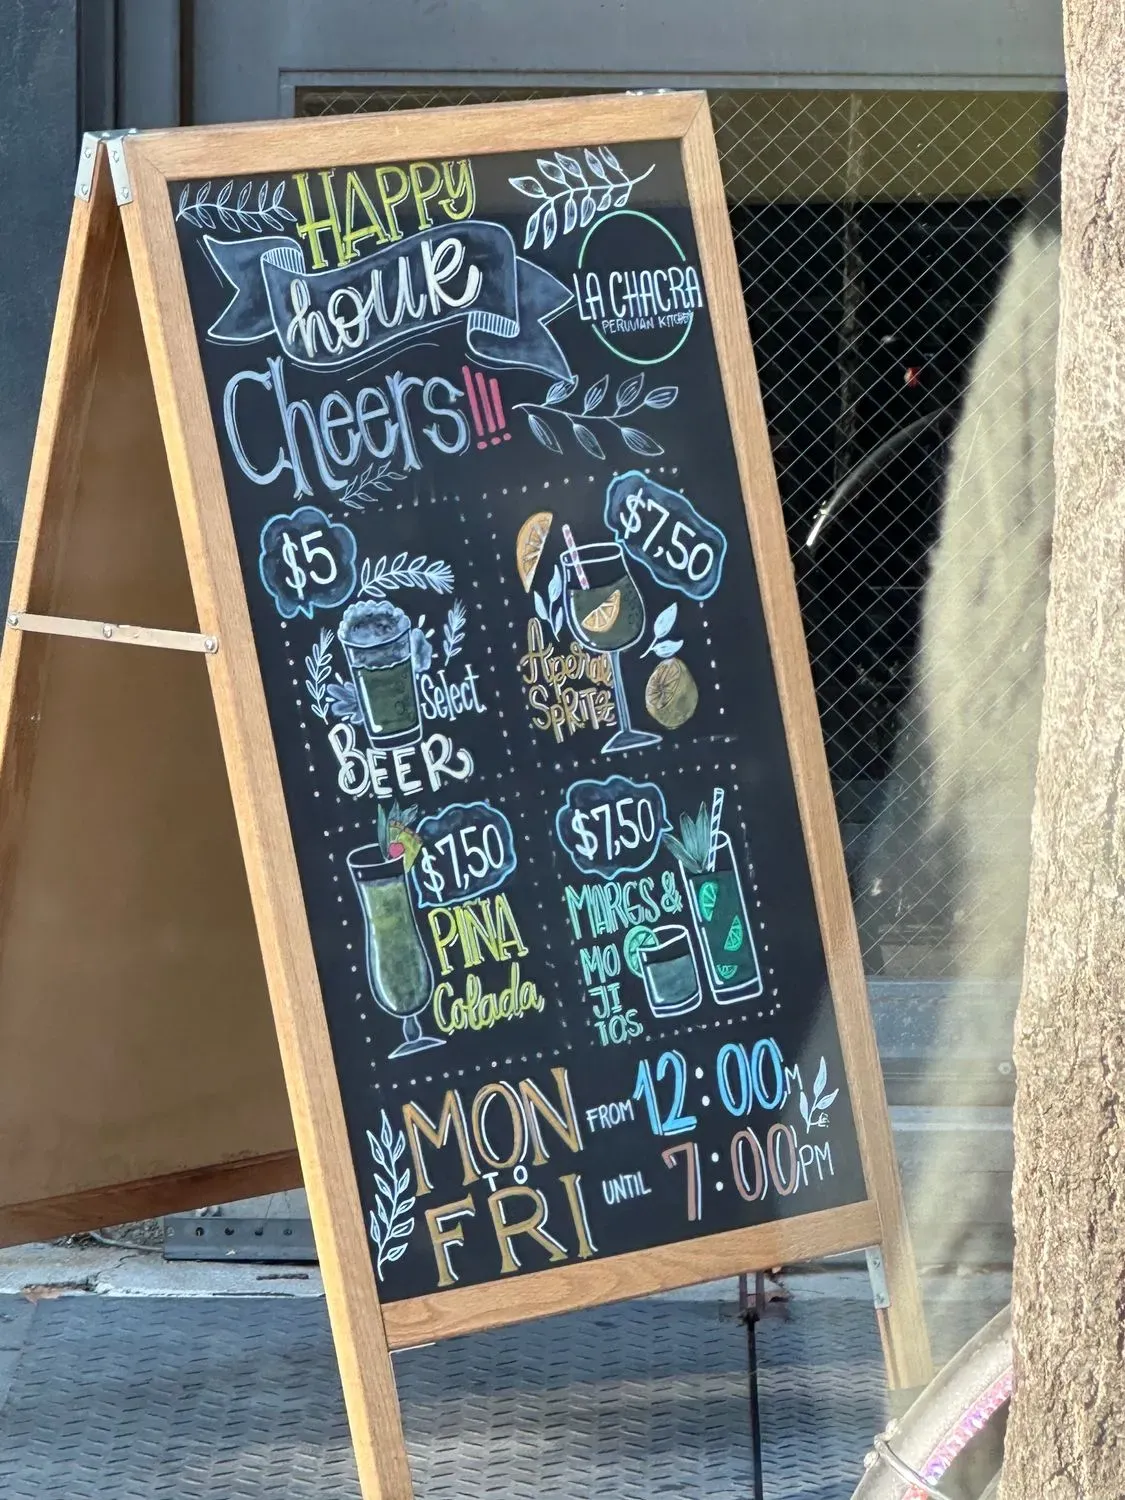 HAPPY
hour
LA CHACRA
PERUVIAN KITCHEN
Cheers!!!
$5
Select
BEER
$7,50
Aperol
SPRITZ
$7,50
PIÑA
Colada
$7,50
MARGS &
MO
JI
TOS
MON
TO
FRI
FROM 12:00PM
UNTIL 7:00PM